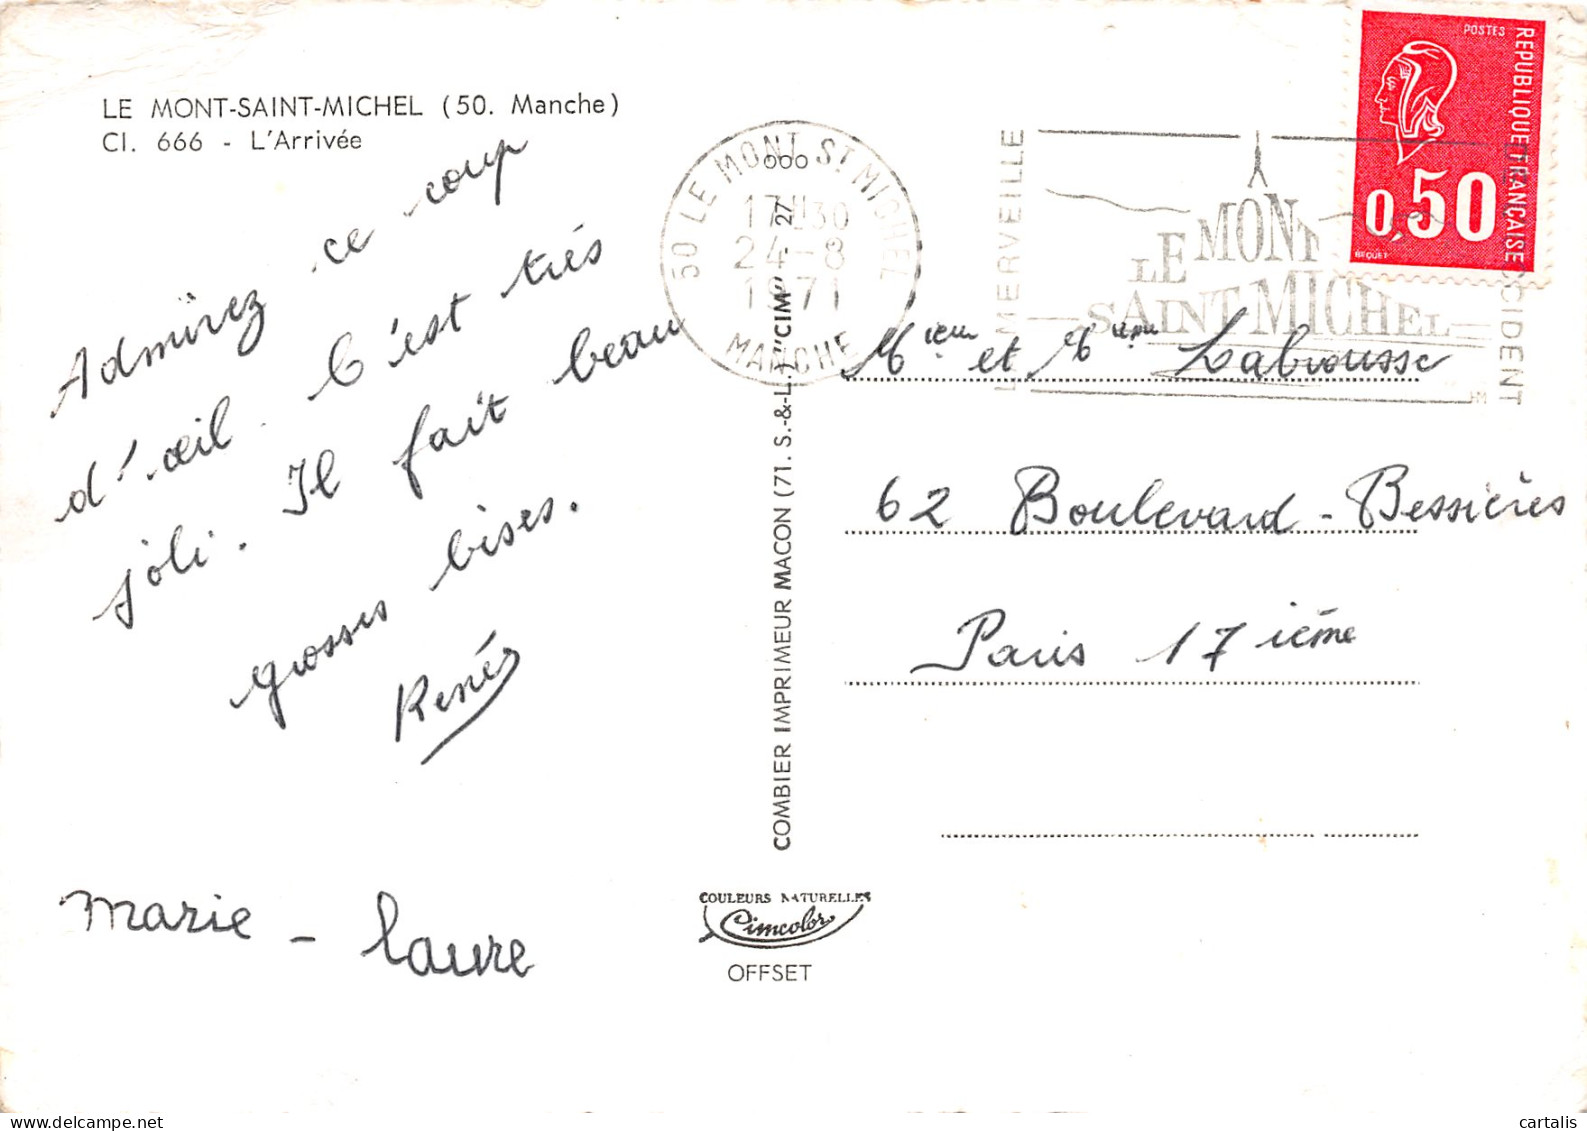 LE MONT-SAINT-MICHEL (50. Manche)
CI. 666 - L'Arrivée
Admirez ce coup
d'œil. C'est très
joli. Il fait beau
grosses bises.
René
Marie - Laure
COMBIER IMPRIMEUR MACON (71. S.-&-L.) "CIM" - 27
COULEURS NATURELLES
Cimcolor
OFFSET
50 LE MONT ST MICHEL
17H30
24-8
1971
MANCHE
MERVEILLE
LE MONT
SAINT-MICHEL
POSTES
REPUBLIQUE FRANÇAISE
0,50
BEQUET
Mieur et Mième Labrousse
62 Boulevard - Bessières
Paris 17 ième
cartalis